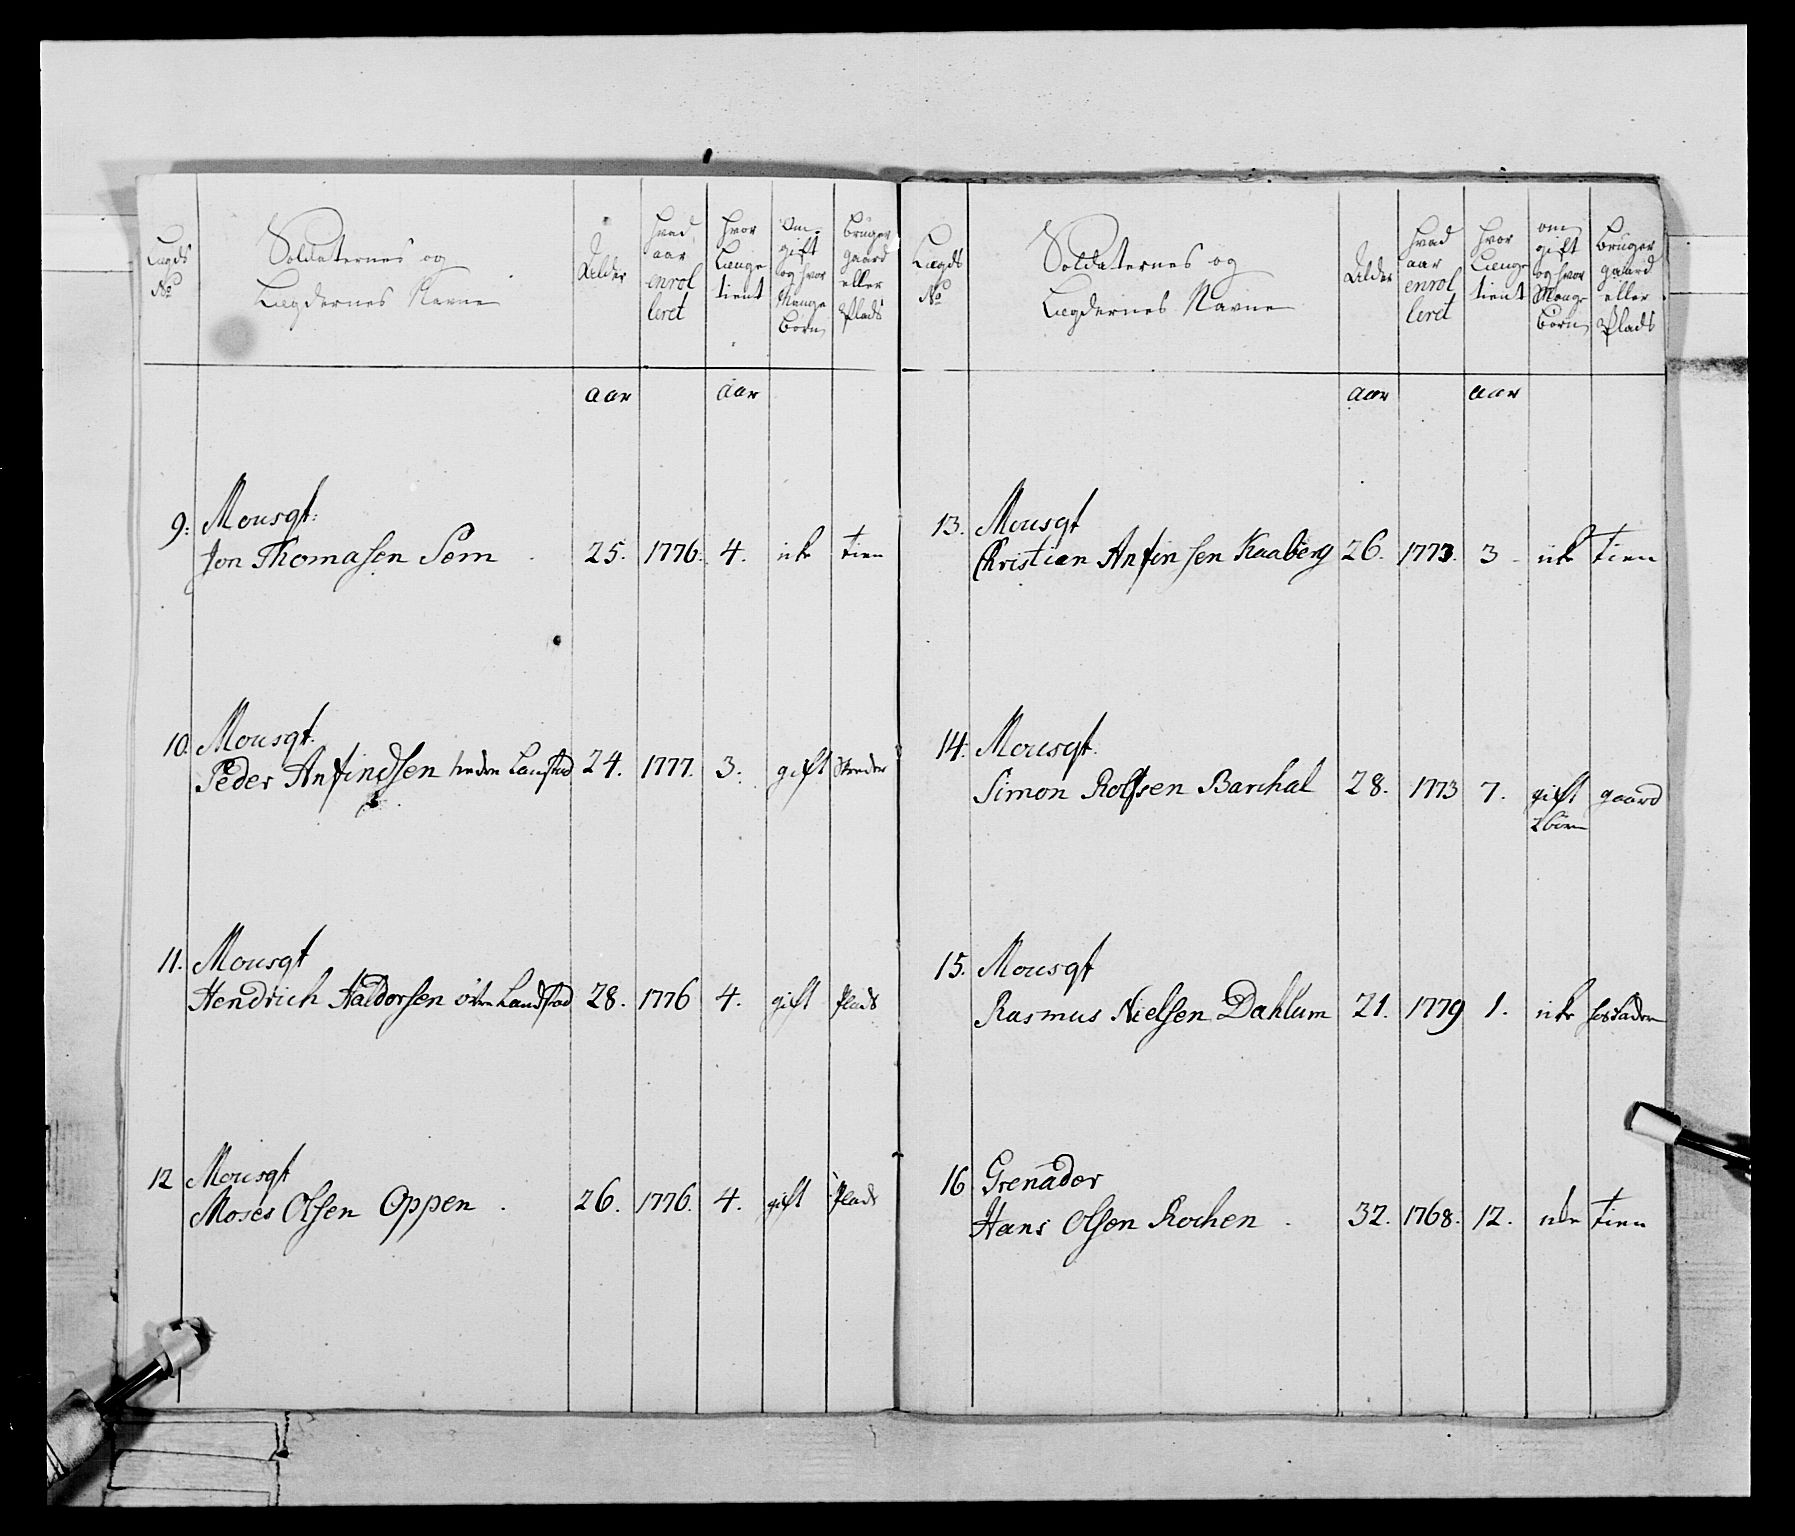 Lægds No
Soldaternes og
Lægdernes Navne
Alder
hvad aar enrolleret
hvor Længe tient
Om gift og hvor Mange børn
bruger gaard eller Plads
aar aar
9: Mousqt:
Jon Thomasen Sem 25. 1776. 4. icke tien
10. Mousqt.
Peder Anfindsen Landstad 24. 1777. 3. gift
11. Mousqt
Hendrich Haldorsen Landstad 28. 1776 4. gift Plads
12 Mousqt
Moses Olsen Oppen 26. 1776. 4. gift Plads
Lægds No
Soldaternes og
Lægdernes Navne
Alder
hvad aar enrolleret
hvor Længe tient
om gift og hvor Mange børn
bruger gaard eller Plads
aar aar
13. Mousqt
Christian Anfinsen Kaaberg 26. 1773. 3 icke tien
14. Mousqt.
Simon Rolfsen Barchal 28. 1773 7. gift gaard
2 børn
15. Mousqt
Rasmus Nielsen Dahlum 21. 1779 1. icke
16 Grenader
Hans Olsen Rochen 32. 1768. 12. icke tien